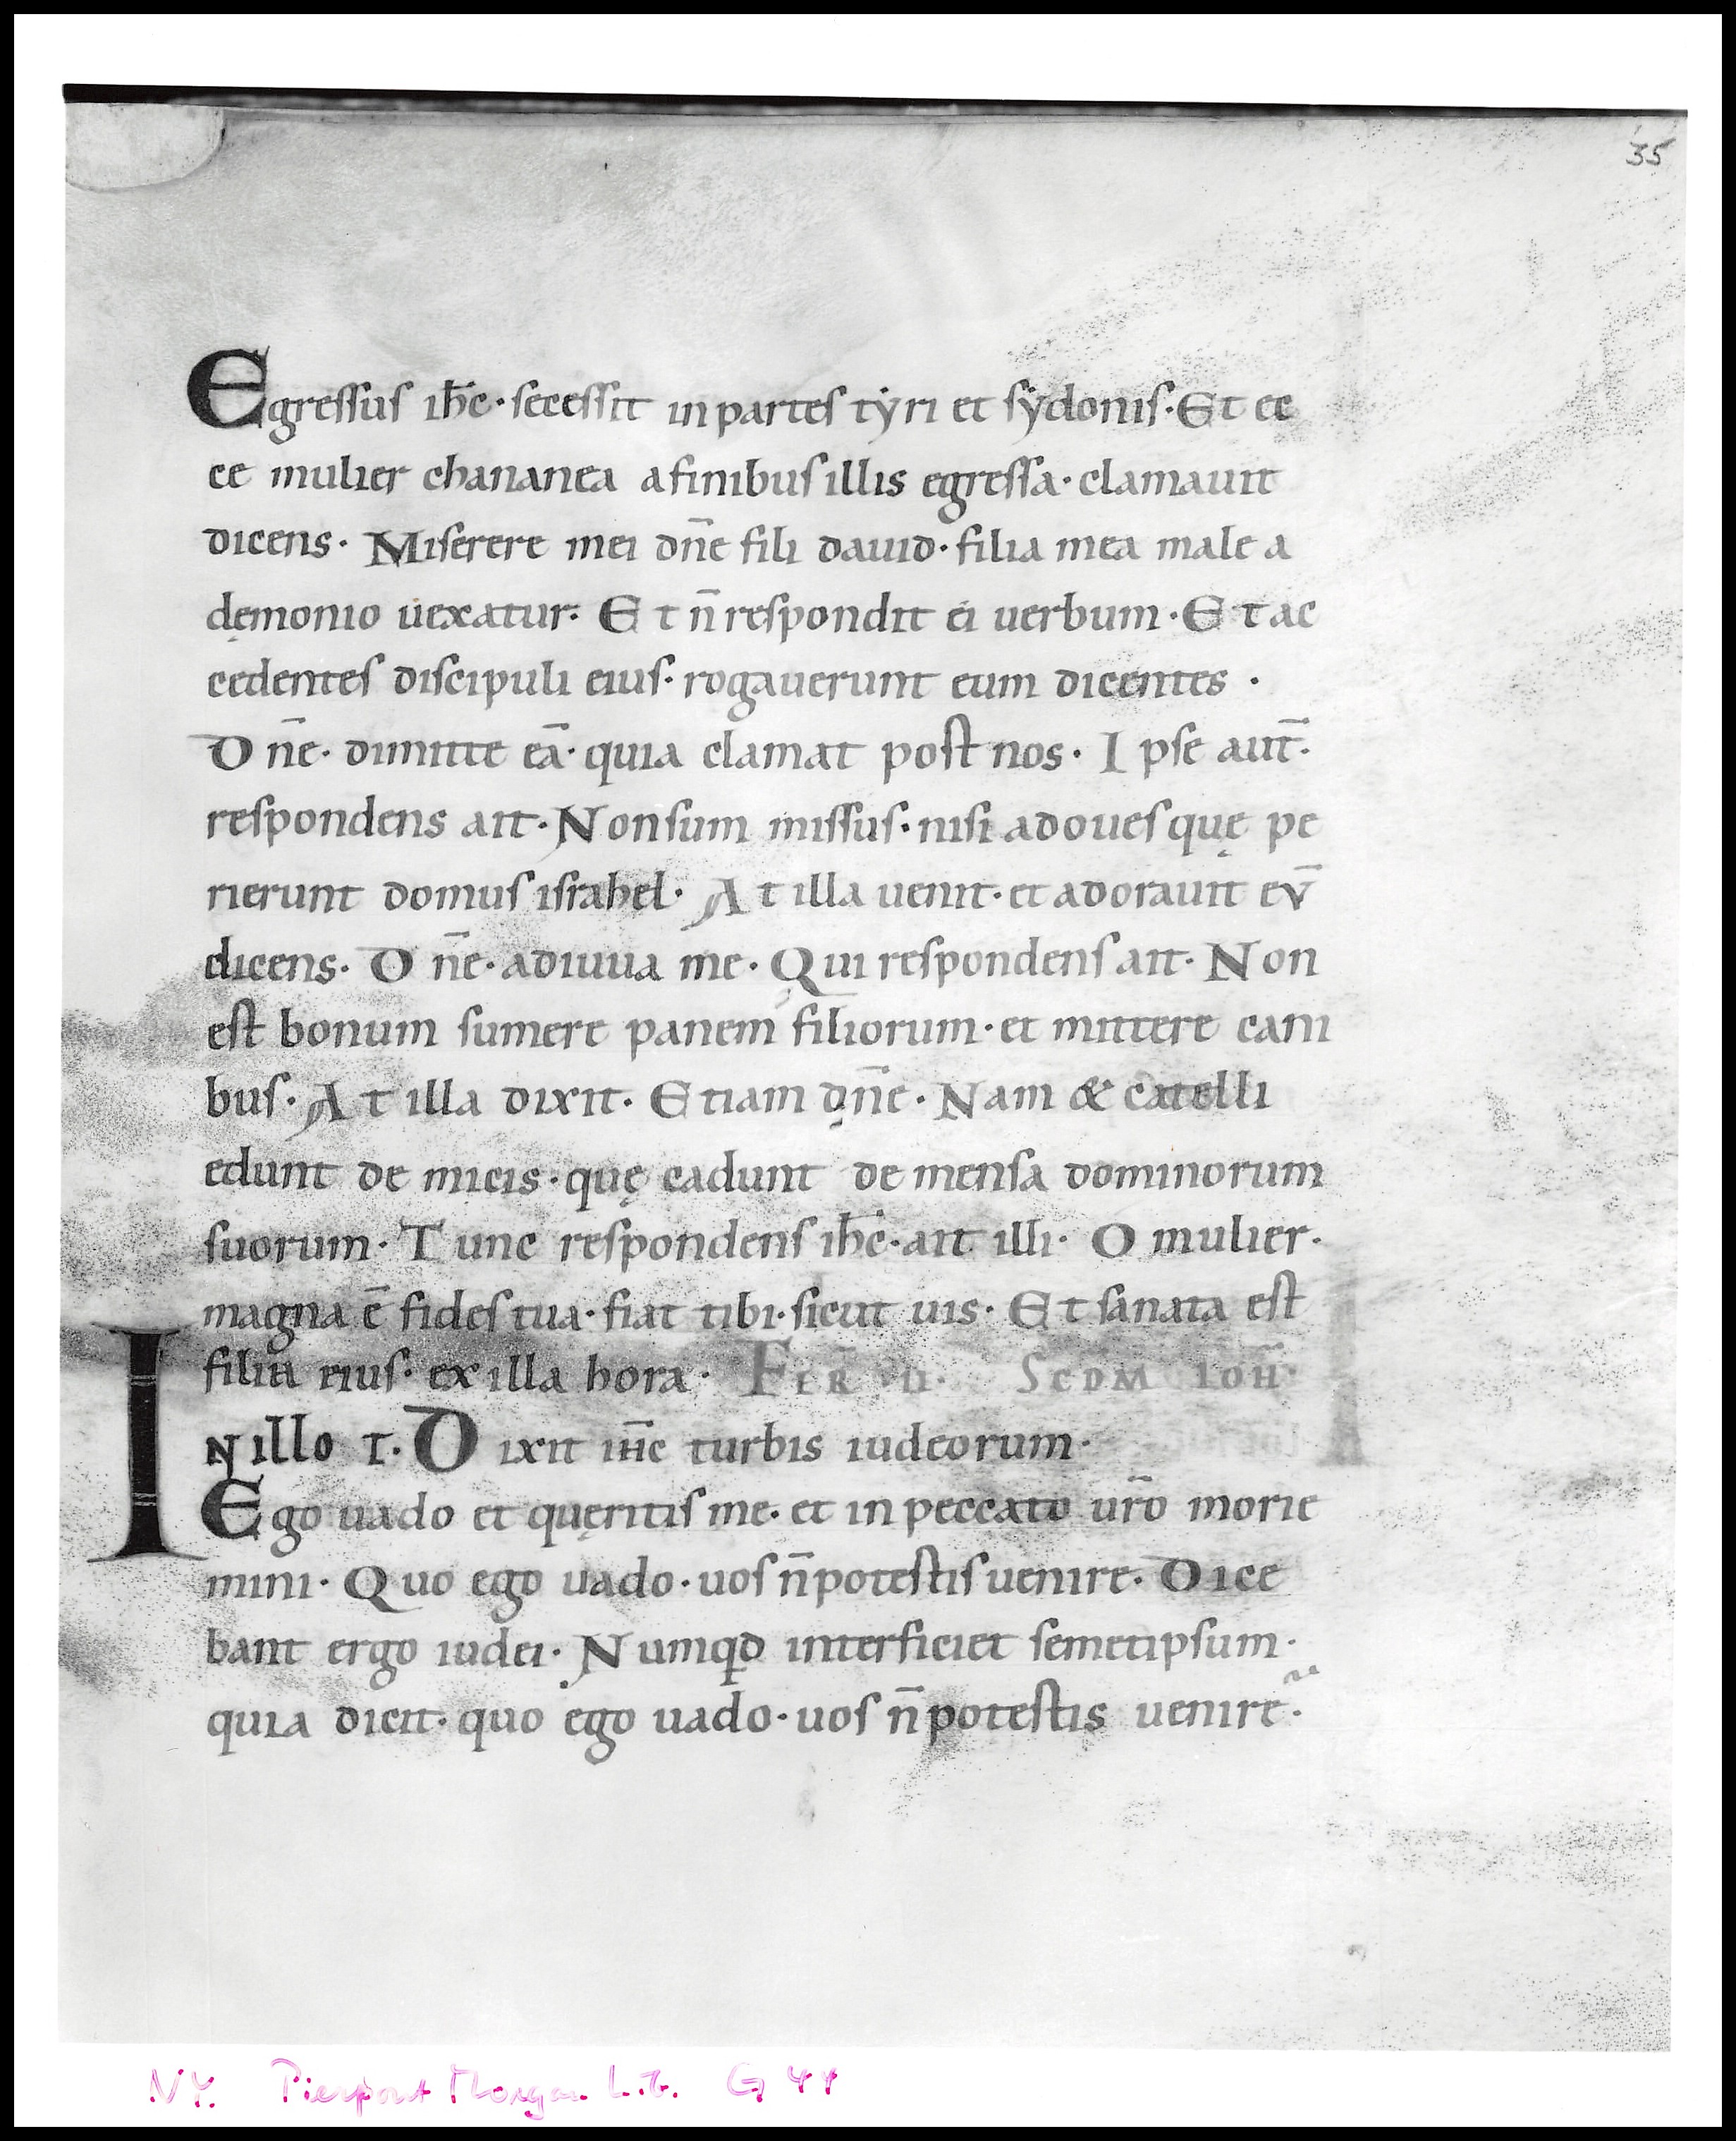 35
Egressus ih̄c · secessit in partes tẏri et sẏdonis · Et ec
ce mulier chananea a finibus illis egressa · clamauit
dicens · Miserere mei dn̄e fili dauid · filia mea male a
dęmonio uexatur · Et n̄ respondit ei uerbum · Et ac
cedentes discipuli eius · rogauerunt eum dicentes ·
Dn̄e · dimitte eā · quia clamat post nos · Ipse aut̄ ·
respondens ait · Non sum missus · nisi ad oues quę pe
rierunt domus israhel · At illa uenit · et adorauit ev̄
dicens · Dn̄e · adiuua me · Qui respondens ait · Non
est bonum sumere panem filiorum · et mittere cani
bus · At illa dixit · Etiam dn̄e · Nam & catelli
edunt de micis · quę cadunt de mensa dominorum
suorum · Tunc respondens ih̄c · ait illi · O mulier ·
magna ē fides tua · fiat tibi · sicut uis · Et sanata est
filia eius · ex illa hora · Fer̄ ii · Scdm ioh̄ ·
In illo t · Dixit ih̄c turbis iudeorum ·
Ego uado et quęritis me · et in peccato ur̄o morie
mini · Quo ego uado · uos n̄ potestis uenire · Dice
bant ergo iudei · Numqd interficiet semetipsum ·
quia dicit · quo ego uado · uos n̄ potestis uenire ·
NY. Pierpont Morgan Lib. G 44